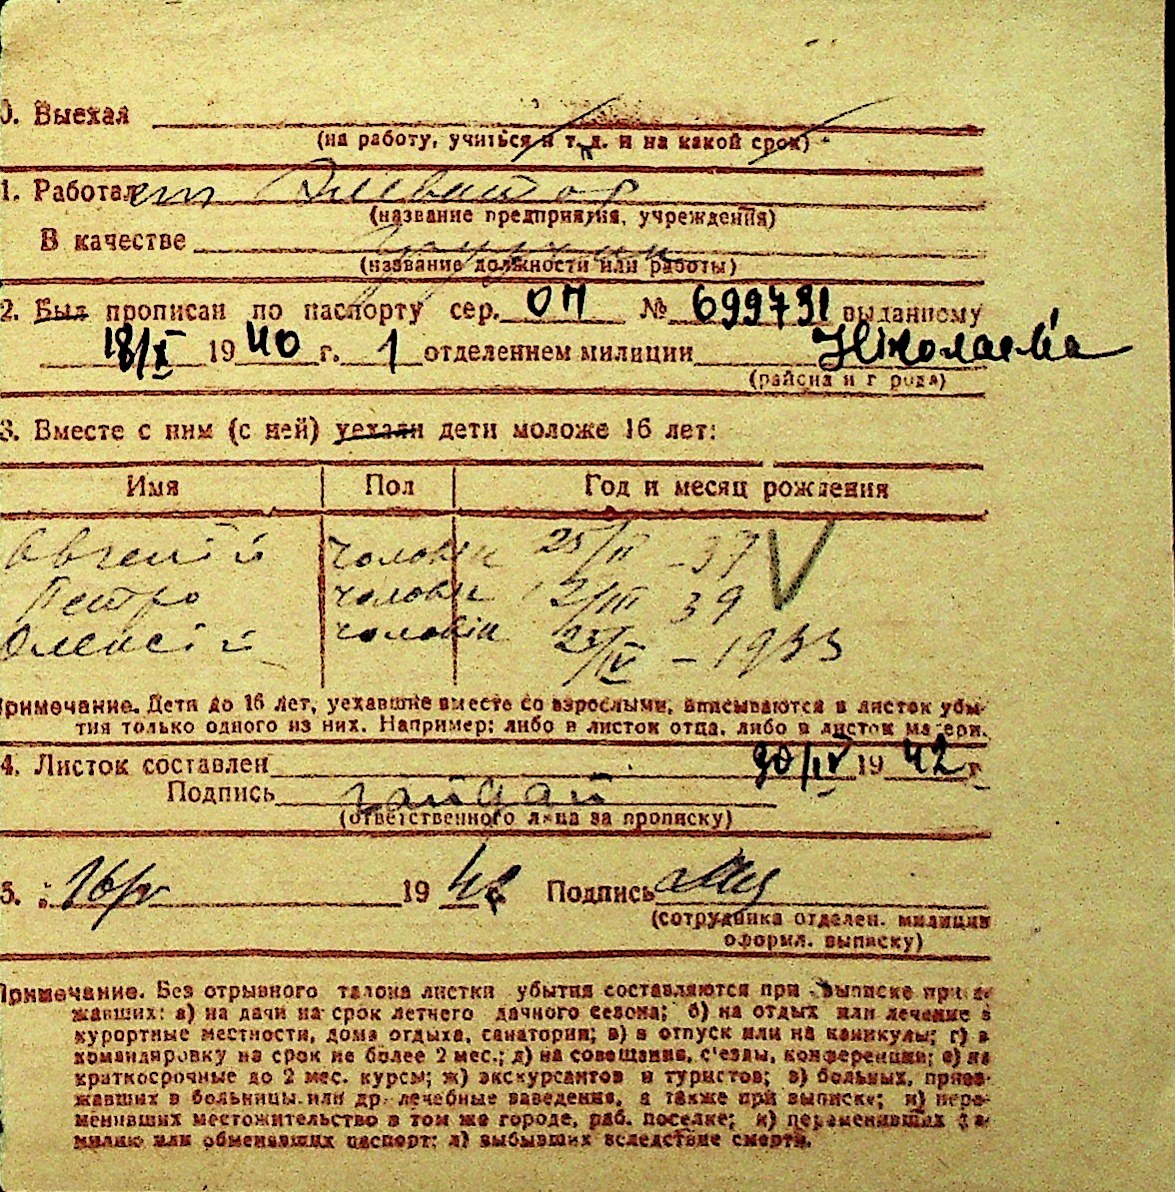 0. Выехал
(на работу, учиться и т. д. и на какой срок)
1. Работает Элеватор
(название предприятия, учреждения)
В качестве
(название должности или работы)
2. Был прописан по паспорту сер. ОП № 699791 выданному
18/X 1940 г. 1 отделением милиции Ніколаєва
(района и города)
3. Вместе с ним (с ней) уехали дети моложе 16 лет:
Имя Пол Год и месяц рождения
Євгеній чоловіч 25/II - 37
Петро чоловіч 12/III 39
Олексій чоловіч 23/IV - 1933
Примечание. Дети до 16 лет, уехавшие вместе со взрослыми, вписываются в листок убы-
тия только одного из них. Например: либо в листок отца, либо в листок матери.
4. Листок составлен 30/IV 1942 г.
Подпись Гайдай
(ответственного лица за прописку)
5. 16/V 1942 г. Подпись
(сотрудника отделен. милиции
оформл. выписку)
Примечание. Без отрывного талона листки убытия составляются при выписке прие-
жавших: а) на дачи на срок летнего дачного сезона; б) на отдых или лечение в
курортные местности, дома отдыха, санатории; в) в отпуск или на каникулы; г) в
командировку на срок не более 2 мес.; д) на совещания, с'езды, конференции; е) на
краткосрочные до 2 мес. курсы; ж) экскурсантов и туристов; з) больных, приез-
жавших в больницы или др. лечебные заведения, а также при выписке; и) пере-
менивших местожительство в том же городе, раб. поселке; к) переменивших фа-
милию или обменявших паспорт; л) выбывших вследствие смерти.